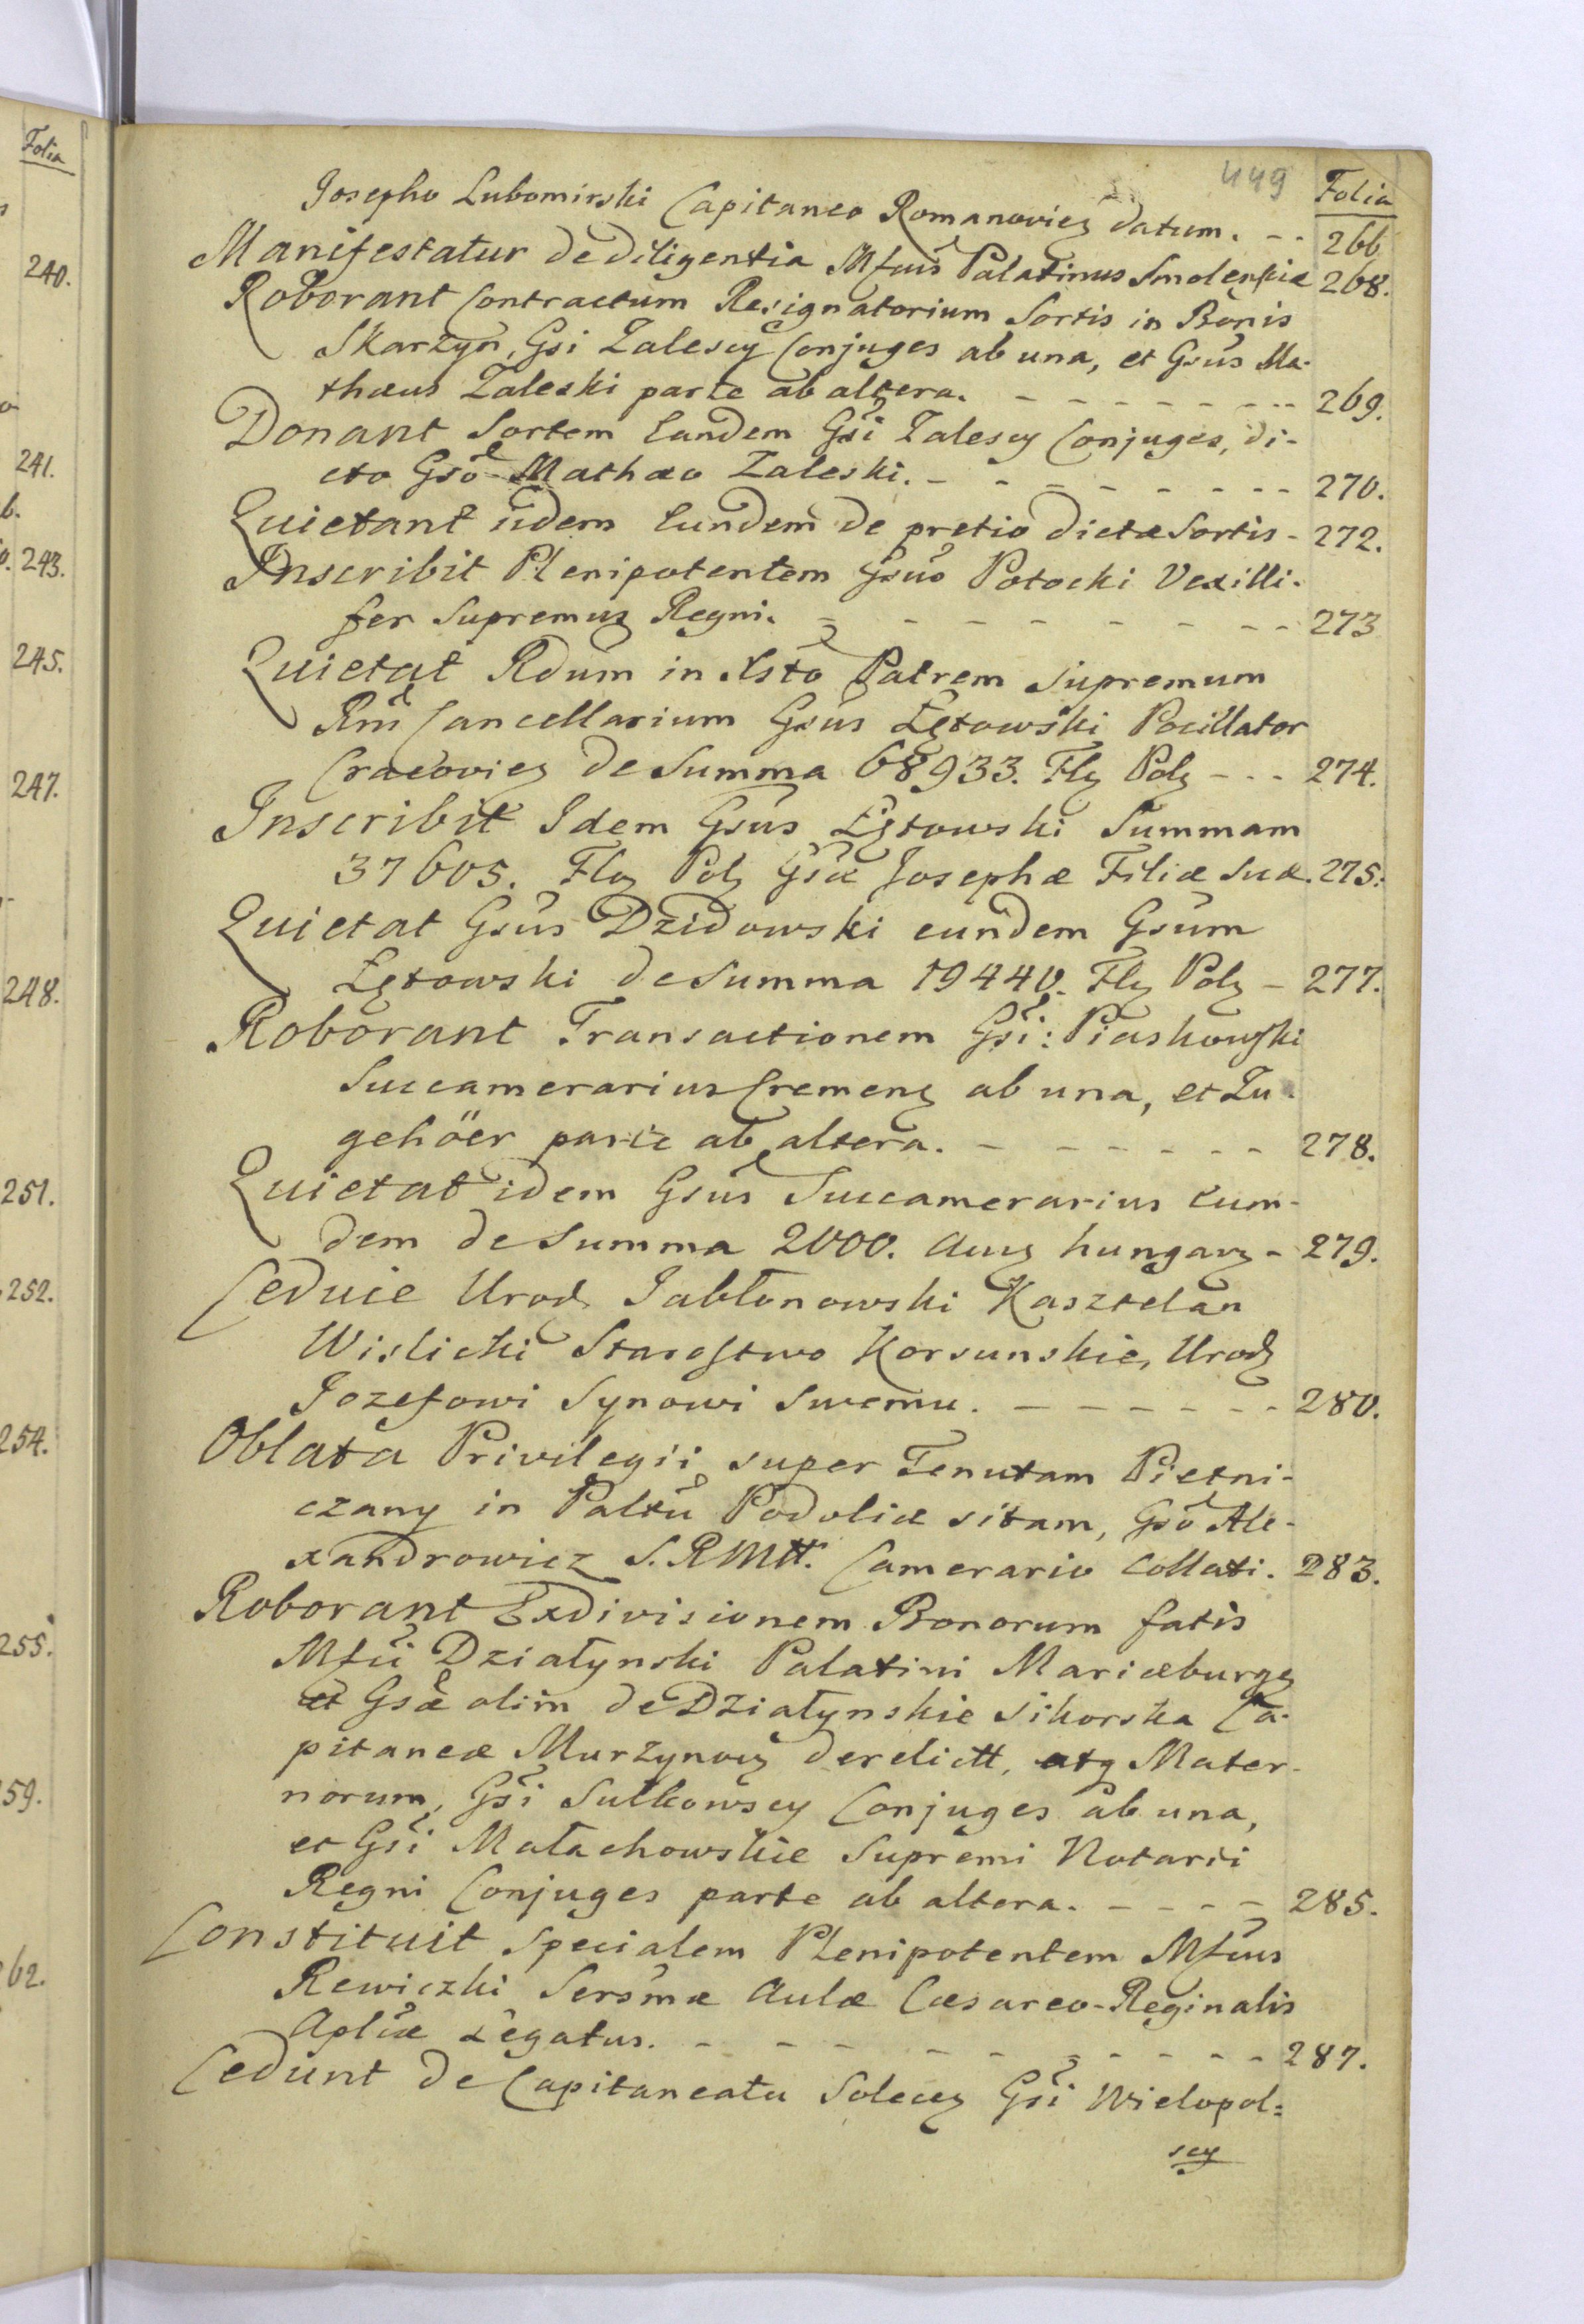 Folia
240.
241.
243.
245.
247.
248.
251.
252.
254.
255.
59.
62.
449 Folia
Josepho Lubomirski Capitaneo Romanovien datum. -- 266
Manifestatur de diligentia Mfcus Palatinus Smolensciæ 268.
Roborant Contractum Resignatorium Sortis in Bonis
Skarżyn, Gsi Zalescy Conjuges ab una, et Gsus Ma-
thæus Zaleski parte ab altera. - - - - - - - - 269.
Donant Sortem Eandem Gsi Zalescy Conjuges, di-
cto Gso Mathæo Zaleski. - - - - - - - - 270.
Quietant iidem Eundem de pretio dictæ Sortis - 272.
Inscribit Plenipotentem Gsus Potocki Vexilli-
fer Supremus Regni. - - - - - - - - 273
Quietat Rdum in Xsto Patrem Supremum
Rni Cancellarium Gsus Łętowski Pocillator
Cracovien de Summa 68933. Flz Polz - - - 274.
Inscribit Idem Gsus Łętowski Summam
37605. Flz Polz Gsæ Josephæ Filiæ Suæ. 275.
Quietat Gsus Dzidowski eundem Gsum
Łętowski de Summa 19440. Flz Polz - 277.
Roborant Transactionem Gsi: Piaskowski
Succamerarius Cremenz ab una, et Zu-
gehöer parte ab altera. - - - - - - 278.
Quietat idem Gsus Succamerarius Eum-
dem de Summa 2000. Aurz hungarz - 279.
Ceduie Urodz Jabłonowski Kasztelan
Wislicki Starostwo Korsunskie, Urodz
Jozefowi Synowi Swemu. - - - - - - 280.
Oblata Privilegii super Tenutam Pietni-
czany in Paltu Podoliæ sitam, Gso Ale-
xandrowicz S. R Mtt. Camerario Collati. 283.
Roborant Exdivisionem Bonorum fatis
Mfci Działynski Palatini Mariæburgz
et Gsæ olim de Działynskie Sikorska Ca-
pitaneæ Murzynowz derelictt, atq Mater-
norum, Gsi Sułkowscy Conjuges ab una,
et Gsi Małachowskie Supremi Notarii
Regni Conjuges parte ab altera. - - - - 285.
Constituit Specialem Plenipotentem Mfcus
Rewiczki Sersmæ Aulæ Cæsareo-Reginalis
Aplicæ Legatus. - - - - - - - - 287.
Cedunt de Capitaneatu Solecz Gsi Wielopol=
scy